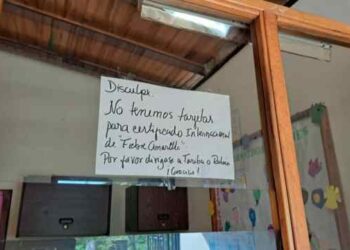 Disculpe.
No tenemos tarjetas
para certificado Internacional
de "Fiebre Amarilla".
Por favor dirigase a Tarabu o
¡Gracias!